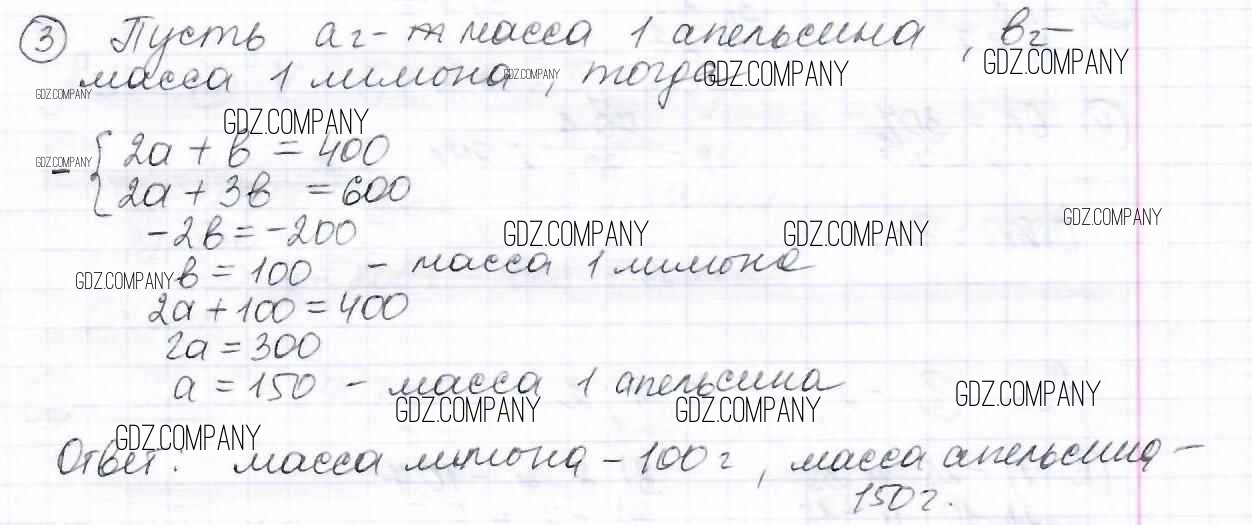 ③ Пусть а г - масса 1 апельсина, в г -
GDZ.COMPANY
масса 1 лимона, тогда
GDZ.COMPANY GDZ.COMPANY
GDZ.COMPANY
GDZ.COMPANY
- { 2а + в = 400
GDZ.COMPANY
2а + 3в = 600
-2в = -200
GDZ.COMPANY GDZ.COMPANY GDZ.COMPANY
в = 100 - масса 1 лимона
GDZ.COMPANY
2а + 100 = 400
2а = 300
а = 150 - масса 1 апельсина
GDZ.COMPANY GDZ.COMPANY GDZ.COMPANY
GDZ.COMPANY
Ответ: масса лимона - 100 г, масса апельсина -
150 г.